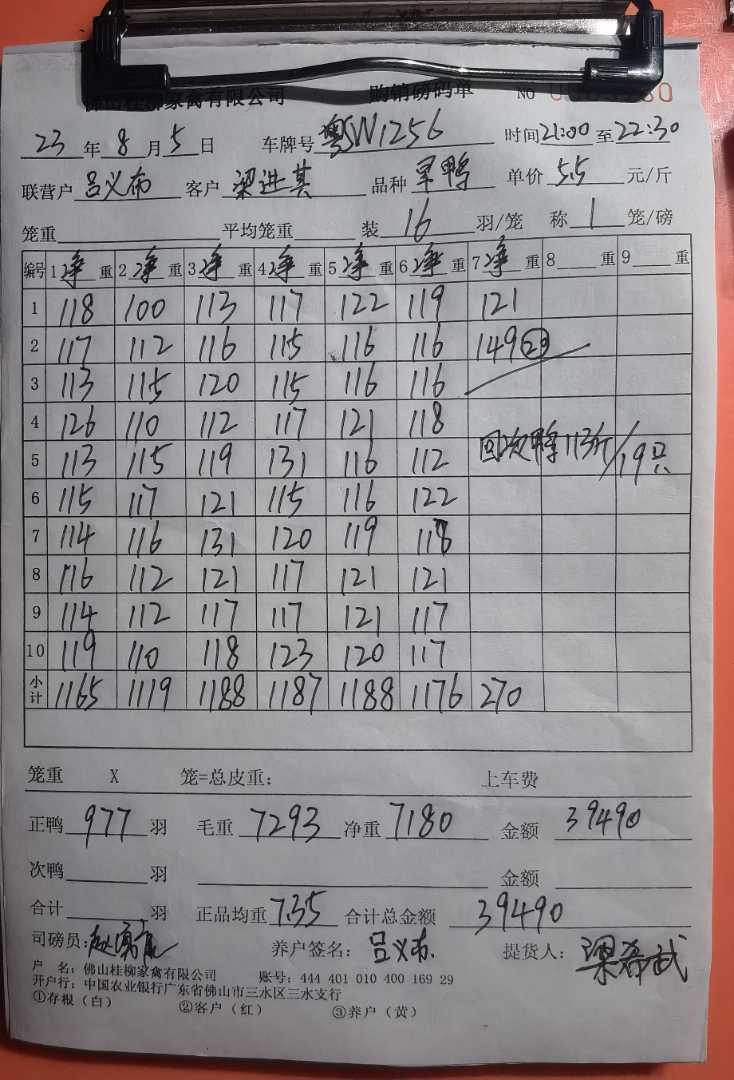 佛山桂柳家禽有限公司 购销磅码单 NO
23 年 8 月 5 日 车牌号 粤SW1256 时间 21:00 至 22:30
联营户 吕义布 客户 梁进其 品种 旱鸭 单价 5.5 元/斤
笼重 平均笼重 装 16 羽/笼 称 1 笼/磅
编号 1 净 重 2 净 重 3 净 重 4 净 重 5 净 重 6 净 重 7 净 重 8 重 9 重
1 118 100 113 117 122 119 121
2 117 112 116 115 116 116 149
3 113 115 120 115 116 116
4 126 110 112 117 121 118
回次鸭 113斤/19只
5 113 115 119 131 116 112
6 115 117 121 115 116 122
7 114 116 131 120 119 118
8 116 112 121 117 121 121
9 114 112 117 117 121 117
10 119 110 118 123 120 117
小计 1165 1119 1188 1187 1188 1176 270
笼重 X 笼=总皮重： 上车费
正鸭 977 羽 毛重 7293 净重 7180 金额 39490
次鸭 羽 金额
合计 羽 正品均重 7.35 合计总金额 39490
司磅员： 养户签名：吕义布 提货人：梁
户 名：佛山桂柳家禽有限公司 账号：444 401 010 400 169 29
开户行：中国农业银行广东省佛山市三水区三水支行
①存根（白） ②客户（红） ③养户（黄）